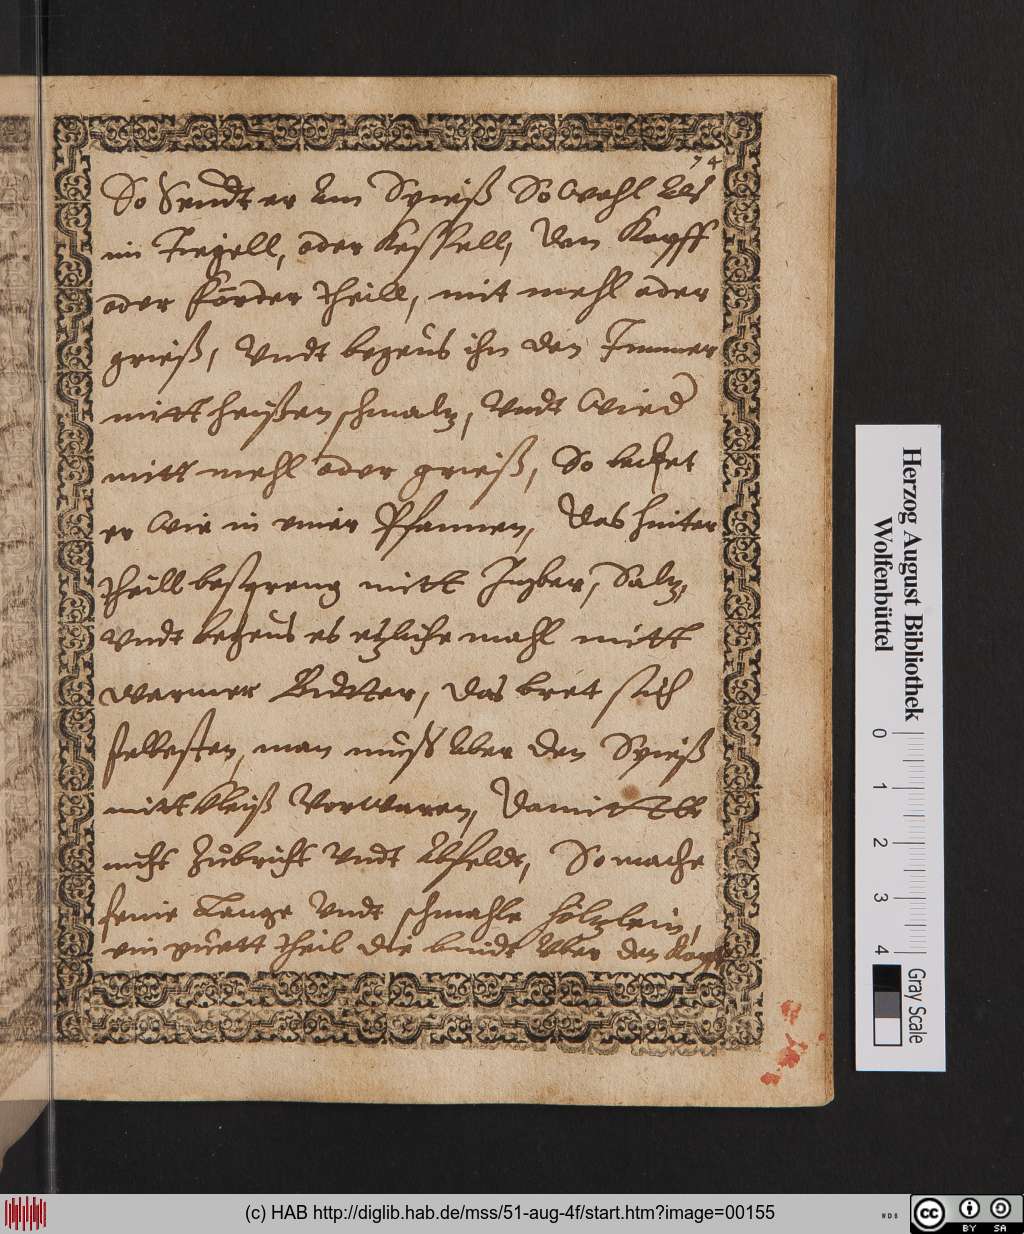 74
So Sendt er Am Spieß So Wohl Als
im Tiegell, oder Kessell, den Kopff
oder förder theill, mit mehl oder
grieß, Vndt begeus ihn den Immer
mitt heißen schmaltz, Vndt Wied
mitt mehl oder grieß, So backet
er Wie in einer Pfannen, das hinter
theill bespreng mitt Ingber, Saltz,
Vndt begeus es etzliche mahl mitt
warmer Butter, das bret sich
selbesten, man muß Aber den Spieß
mitt fleiß Vorwaren, damitt
nicht Zubricht Vndt Abfeldt, So mache
feine Lange Vndt schmahle höltzlein,
ein theil die bindt Vber den Kopff
Herzog August Bibliothek
Wolfenbüttel
0 1 2 3 4
Gray Scale
(c) HAB http://diglib.hab.de/mss/51-aug-4f/start.htm?image=00155
WDB
cc BY SA